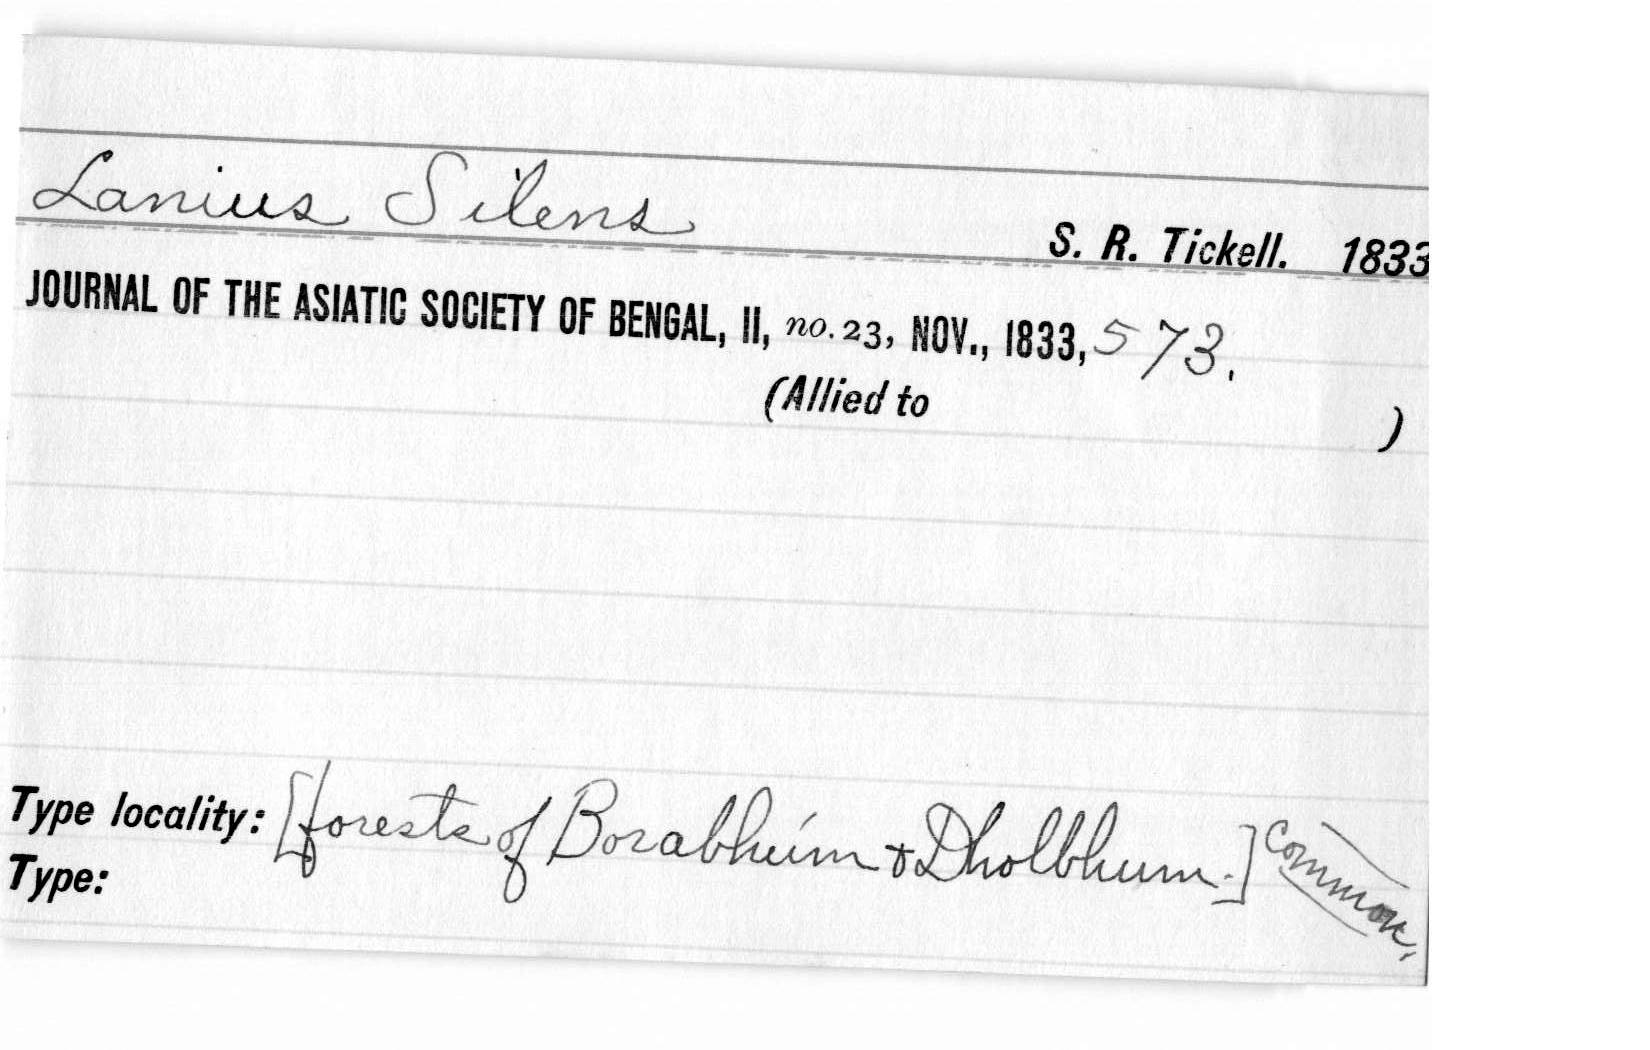 Lanius Silens
S. R. Tickell. 1833
JOURNAL OF THE ASIATIC SOCIETY OF BENGAL, II, no. 23, NOV., 1833, 573.
(Allied to )
Type locality: [forests of Borabhúm & Dholbhum.] Common,
Type: